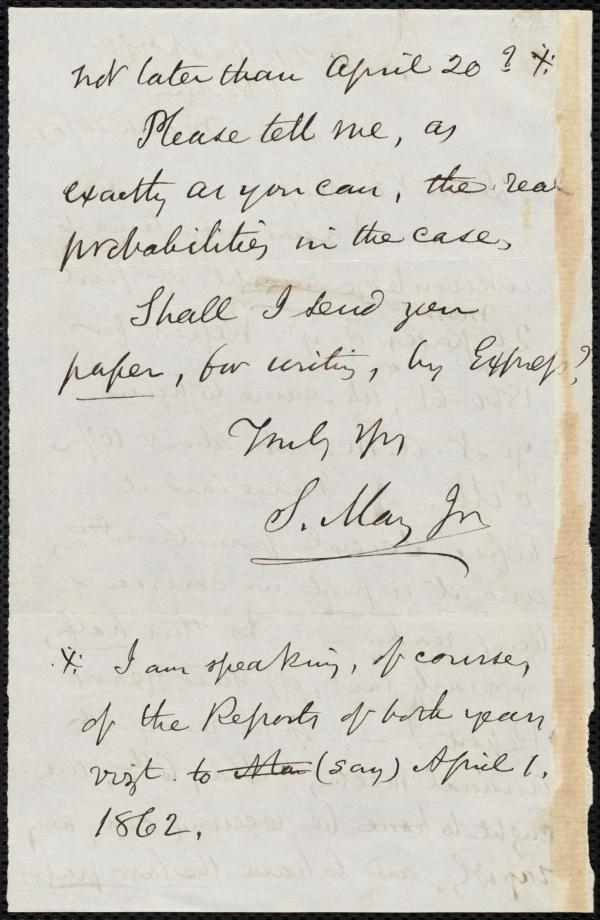 not later than April 20? ※
Please tell me, as
exactly as you can, the real
probabilities in the case.
Shall I send you
paper, for writing, by Express?
Truly Yrs
S. May Jr
※ I am speaking, of course,
of the Reports of both years
vizt. to Mar (say) April 1.
1862.